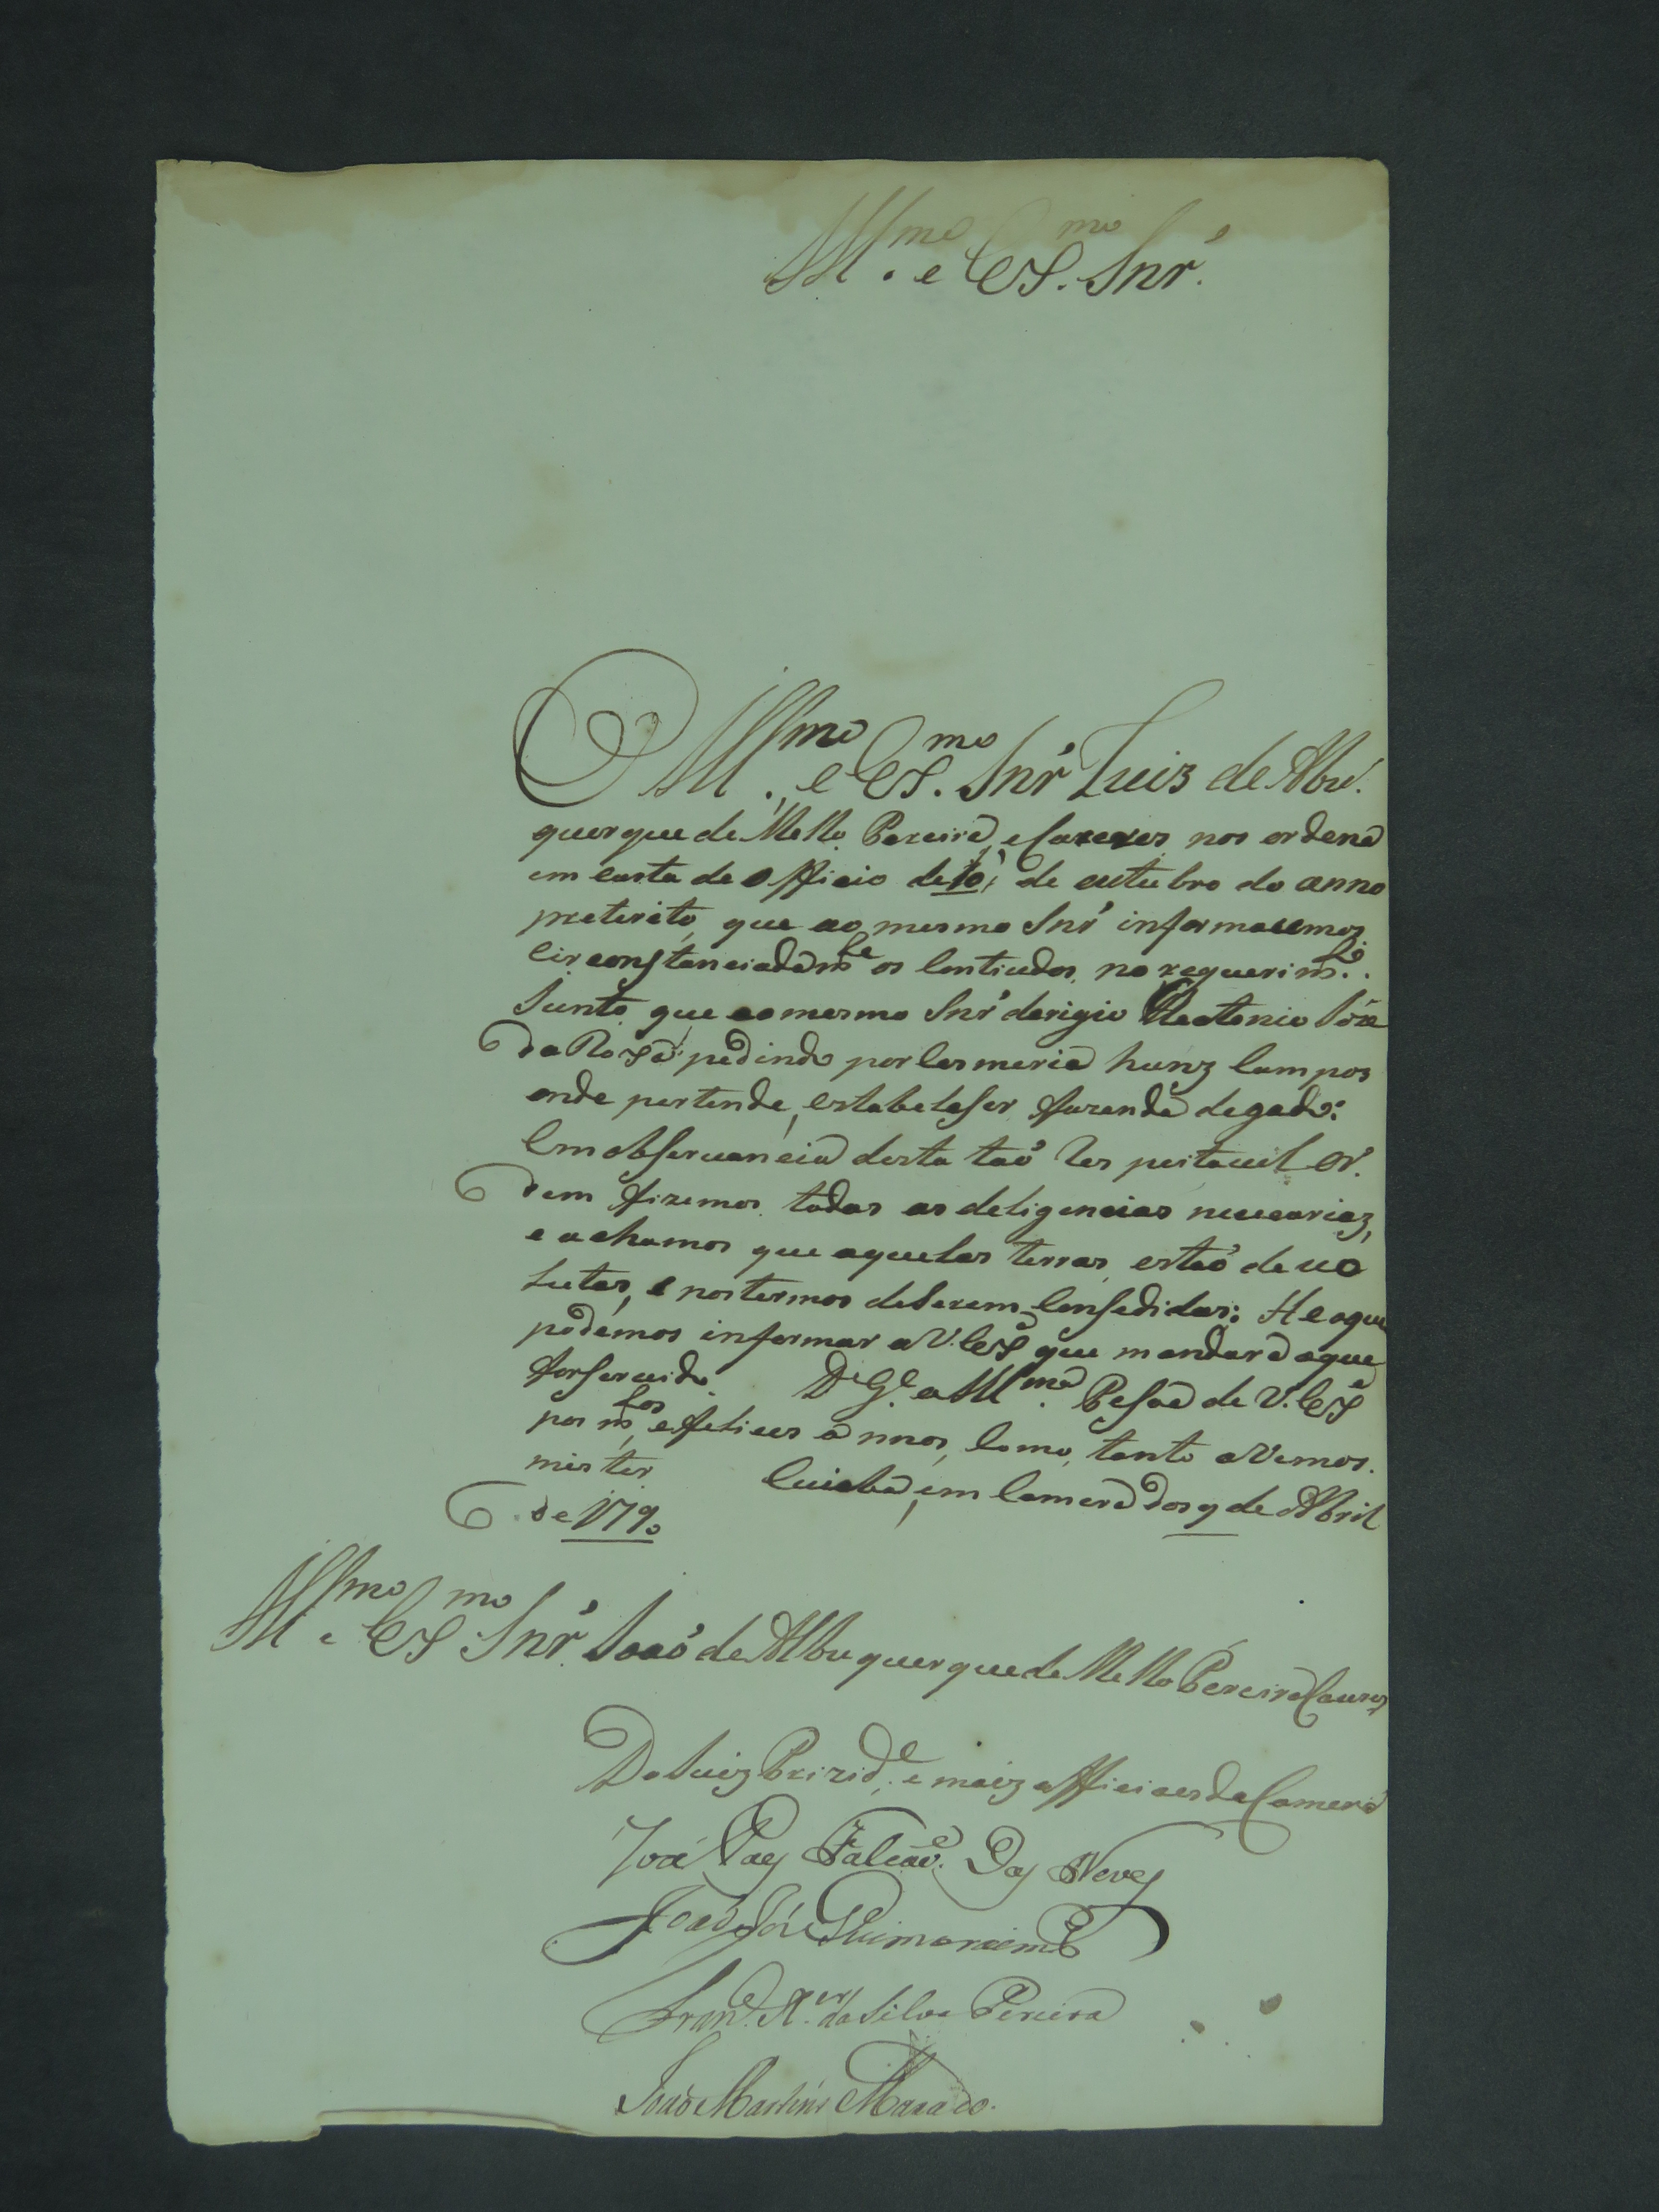 Illmo. e Exmo. Snr.
O Illmo. e Exmo. Snr Luis de Albu
querque de Mello Pereira, e Caceres nos ordena
em carta de officio de 10, de outubro do anno
preterito, que ao mesmo Snr informacemos
circonstanciadamte os Contiudos no requerimto.
Junto que ao mesmo Snr derigio Antonio Józe
da Roza: pedindo por Cesmeria hunz Campos
onde pertende, estabeleser fazenda de gado:
Em observancia desta taó Respeitavil or
dem fizemos todas as deligencias nececariaz,
e achamos que aquelas terras estaó devo
lutas, e nos termos de Serem Consedidas: He o que
podemos informar a V. Exa que mandará o que
for servido. De Ge. a Illma. Pesoa de V. Exa
por mtos, e felices annos, Como, tanto avemos.
mister Cuiabá, em Camera dos 9 de Abril
de 1790
Illmo e Exmo Snr. Joaó de Albuquerque de Mello Pereira Caceres
Do Juiz Prezide. e maiz officiaes da Camera
José Paes Falcaó. Das Neves
Joaó Józe Guimaraens
Franco. Xer. da Silva Pereira
João Martins